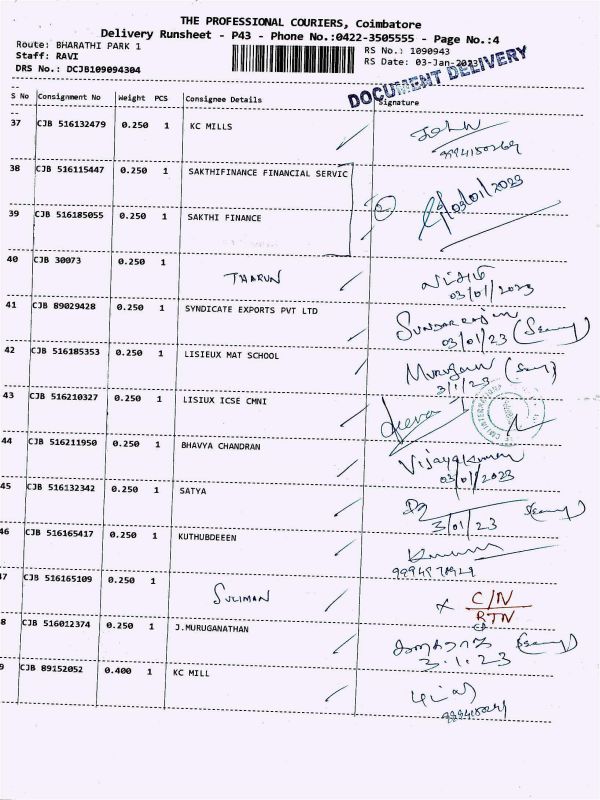 THE PROFESSIONAL COURIERS, Coimbatore
Delivery Runsheet - P43 - Phone No.:0422-3505555 - Page No.:4
Route: BHARATHI PARK 1 RS No.: 1090943
Staff: RAVI RS Date: 03-Jan-2023
DRS No.: DCJB109094304
DOCUMENT DELIVERY
S No Consignment No Weight PCS Consignee Details Signature
37 CJB 516132479 0.250 1 KC MILLS John
38 CJB 516115447 0.250 1 SAKTHIFINANCE FINANCIAL SERVIC
03/01/2023
39 CJB 516185055 0.250 1 SAKTHI FINANCE
40 CJB 30073 0.250 1
THARUN
03/01/2023
41 CJB 89029428 0.250 1 SYNDICATE EXPORTS PVT LTD
03/01/23
42 CJB 516185353 0.250 1 LISIEUX MAT SCHOOL Murugan
3/1/23
43 CJB 516210327 0.250 1 LISIUX ICSE CMNI
44 CJB 516211950 0.250 1 BHAVYA CHANDRAN Vijayakumar
03/01/2023
45 CJB 516132342 0.250 1 SATYA
3/01/23
46 CJB 516165417 0.250 1 KUTHUBDEEEN
7 CJB 516165109 0.250 1
SULIMAN C/N
RTN
8 CJB 516012374 0.250 1 J.MURUGANATHAN
3.1.23
9 CJB 89152052 0.400 1 KC MILL